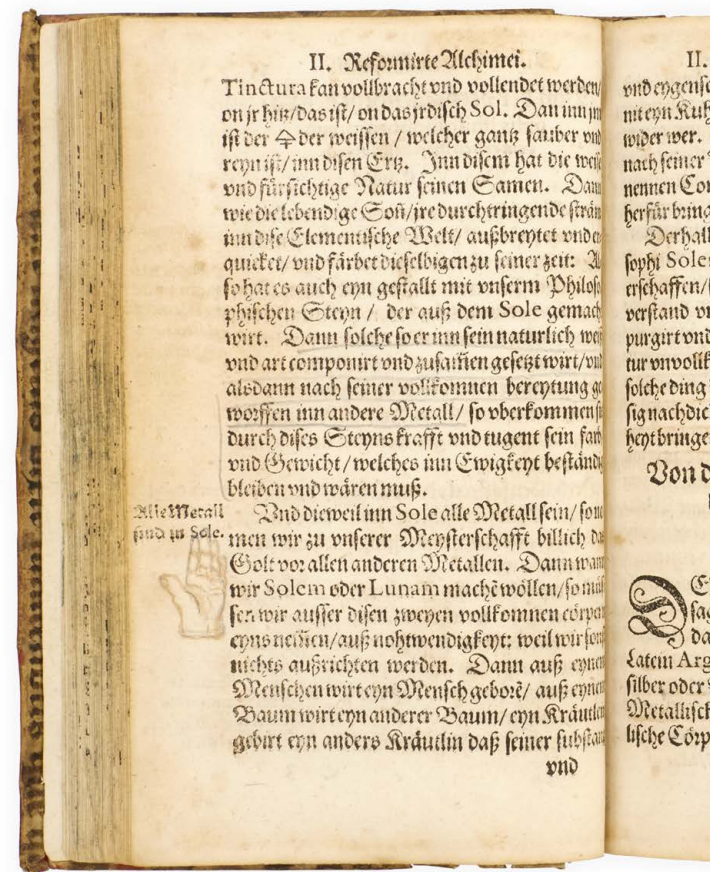 II. Reformirte Alchimei.
Tinctura kan vollbracht vnd vollendet werden/
on jr hitz/das ist/ on das jrdisch Sol. Dan inn jm
ist der 🜍 der weissen / welcher gantz sauber vnd
reyn ist/ inn disen Ertz. Inn disem hat die weiß
vnd fürsichtige Natur seinen Samen. Dann
wie die lebendige Soñ/jre durchtringende
inn dise Elementische Welt/ außbreytet vnd
quicket/ vnd färbet dieselbigen zu seiner zeit:
so hat es auch eyn gestallt mit vnserm
phischen Steyn / der auß dem Sole gemach
wirt. Dann solche so er inn sein naturlich
vnd art componirt vnd zusam̃en gesetzt wirt/
alsdann nach seiner vollkomnen bereytung
worffen inn andere Metall/ so vberkommen
durch dises Steyns krafft vnd tugent sein farb
vnd Gewicht/welches inn Ewigkeyt
bleiben vnd wären muß.
Alle Metall
sind in Sole.
Vnd dieweil inn Sole alle Metall sein/
men wir zu vnserer Meysterschafft billich das
Golt vor allen anderen Metallen. Dann wann
wir Solem oder Lunam machẽ wöllen/so
sen wir ausser disen zweyen vollkomnen cörpern
eyns nem̃en/auß nohtwendigkeyt: weil wir sonst
nichts außrichten werden. Dann auß eynen
Menschen wirt eyn Mensch geborẽ/ auß eynen
Baum wirt eyn anderer Baum/ eyn Kräutlen
gebirt eyn anders Kräutlin daß seiner substantz
vnd
II.
vnd
mit eyn
wider wer.
nach seiner
nennen
herfür
sophi Sole
erschaffen/
verstand
purgirt vnd
tur
solche ding
sig
heyt bringe
Von
Latein
silber oder